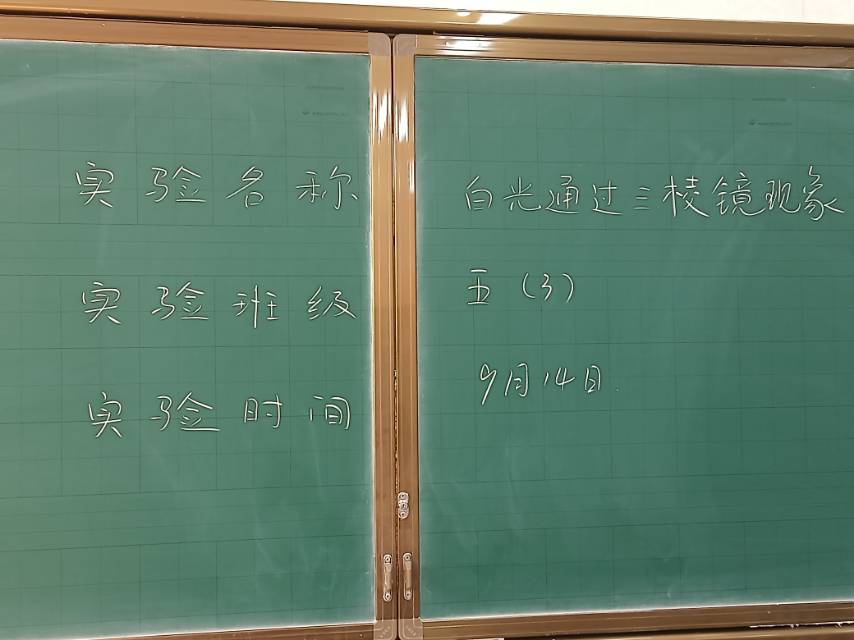 实验名称 白光通过三棱镜现象
实验班级 五（3）
实验时间 9月14日